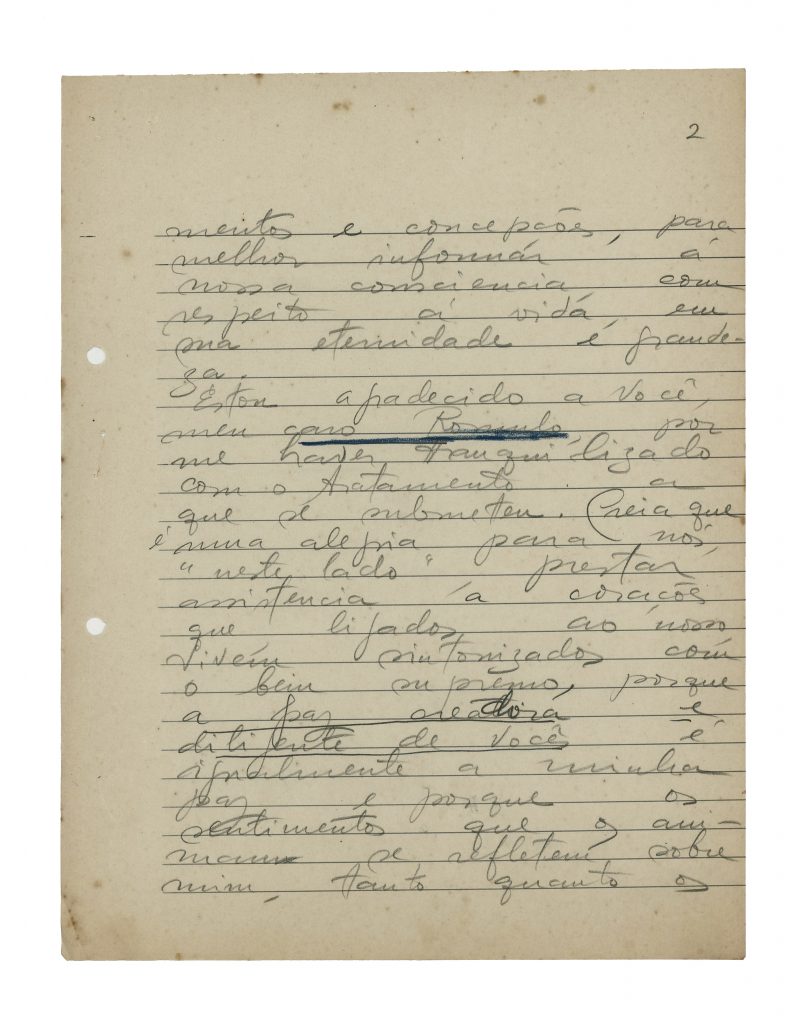 2
mentos e concepções, para
melhor informár á
nossa consciencia com
respeito á vidá em
sua eternidade é grande-
za.
Estou agradecido a Você,
meu caro Romulo, por
me haver tranquilizado
com o tratamento a
que se submeteu. Creia que
é uma alegria para nós,
"neste lado" prestar
assistencia á corações
que ligados ao nosso
vivem sintonizados com
o bem supremo, porque
a paz creadora e
diligente de vocês é
igualmente a minha
paz e porque os
sentimentos que os ani-
mam se refletem sobre
mim, tanto quanto os